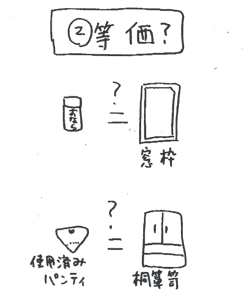 ②等価?
?
=
窓枠
?
=
使用済み
パンティ
桐箪笥